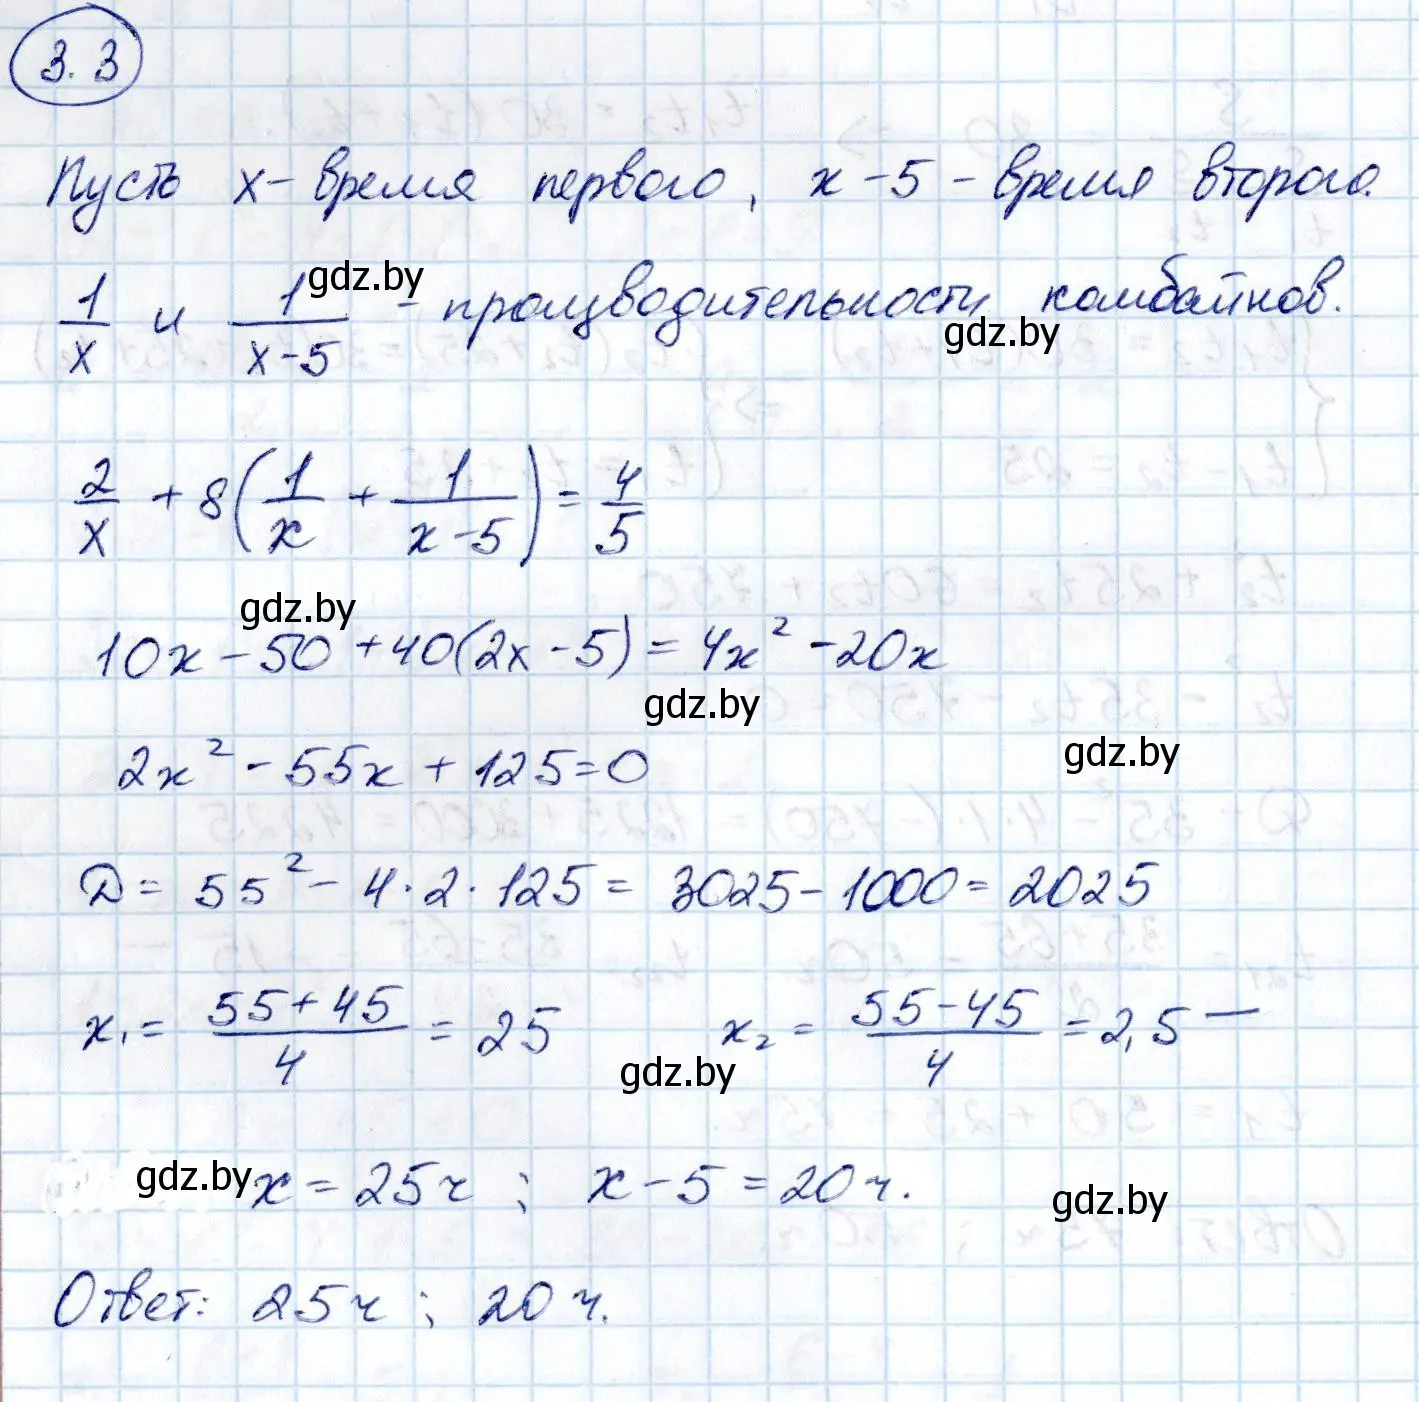 3.3
Пусть x - время первого, x - 5 - время второго.
1/x и 1/(x-5) - производительности комбайнов.
gdz.by
gdz.by
2/x + 8(1/x + 1/(x-5)) = 4/5
gdz.by
10x - 50 + 40(2x - 5) = 4x² - 20x
gdz.by
gdz.by
2x² - 55x + 125 = 0
D = 55² - 4·2·125 = 3025 - 1000 = 2025
x₁ = (55+45)/4 = 25 x₂ = (55-45)/4 = 2,5 —
gdz.by
gdz.by x = 25ч ; x - 5 = 20ч.
gdz.by
Ответ: 25ч ; 20ч.